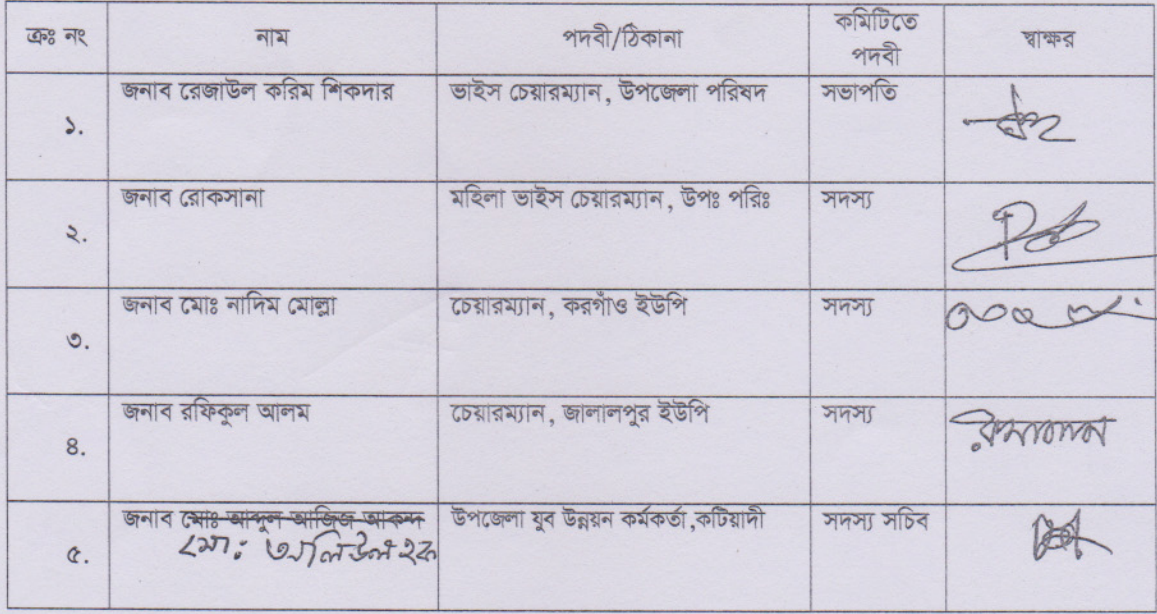 ক্রঃ নং নাম পদবী/ঠিকানা কমিটিতে পদবী স্বাক্ষর
১. জনাব রেজাউল করিম শিকদার ভাইস চেয়ারম্যান, উপজেলা পরিষদ সভাপতি
২. জনাব রোকসানা মহিলা ভাইস চেয়ারম্যান, উপঃ পরিঃ সদস্য
৩. জনাব মোঃ নাদিম মোল্লা চেয়ারম্যান, করগাঁও ইউপি সদস্য
৪. জনাব রফিকুল আলম চেয়ারম্যান, জালালপুর ইউপি সদস্য
৫. জনাব মোঃ আব্দুল আজিজ আকন্দ উপজেলা যুব উন্নয়ন কর্মকর্তা,কটিয়াদী সদস্য সচিব
মো: অলিউল হক